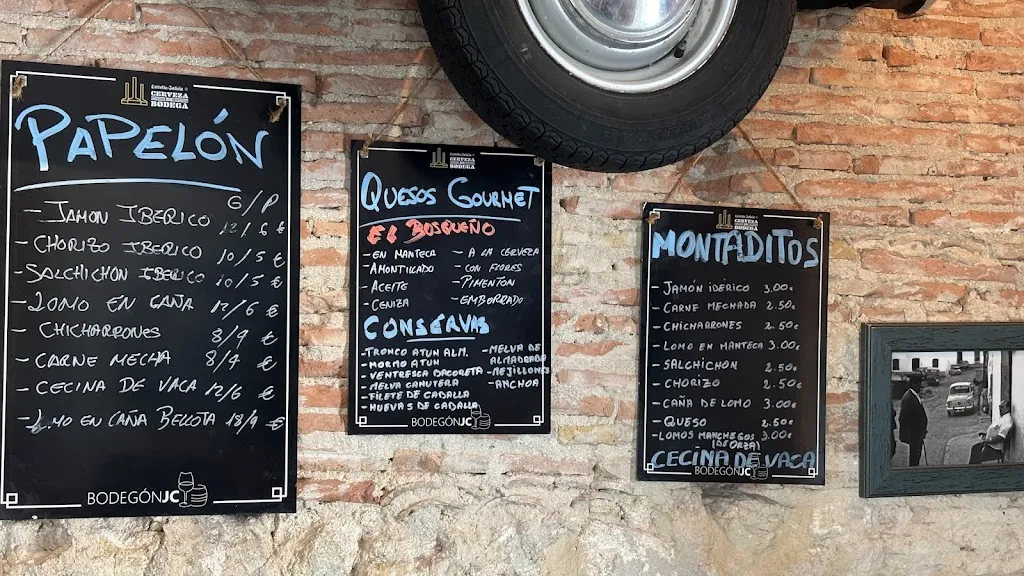 Estrella Galicia
CERVEZA
BODEGA
PAPELÓN
G/P
- JAMON IBERICO 12/6 €
- CHORIZO IBERICO 10/5 €
- SALCHICHON IBERICO 10/5 €
- LOMO EN CAÑA 12/6 €
- CHICHARRONES 8/4 €
- CARNE MECHA 8/4 €
- CECINA DE VACA 12/6 €
- LOMO EN CAÑA BELLOTA 18/9 €
BODEGÓN JC
Estrella Galicia
CERVEZA
BODEGA
QUESOS GOURMET
EL BOSQUEÑO
- EN MANTECA
- AMONTILLADO
- ACEITE
- CENIZA
- A LA CERVEZA
- CON FLORES
- PIMENTÓN
- EMBORRADO
CONSERVAS
- TRONCO ATUN ALM.
- MORMO ATUN
- VENTRESCA BACORETA
- MELVA CANUTERA
- FILETE DE CABALLA
- HUEVAS DE CABALLA
- MELVA DE
ALMADRABA
- MEJILLONES
- ANCHOA
BODEGÓN JC
Estrella Galicia
CERVEZA
BODEGA
MONTADITOS
- JAMÓN IBÉRICO 3.00€
- CARNE MECHADA 2.50€
- CHICHARRONES 2.50€
- LOMO EN MANTECA 3.00€
- SALCHICHON 2.50€
- CHORIZO 2.50€
- CAÑA DE LOMO 3.00€
- QUESO 2.50€
- LOMOS MANCHEGOS 3.00€
(DE ORZA)
CECINA DE VACA
BODEGÓN JC